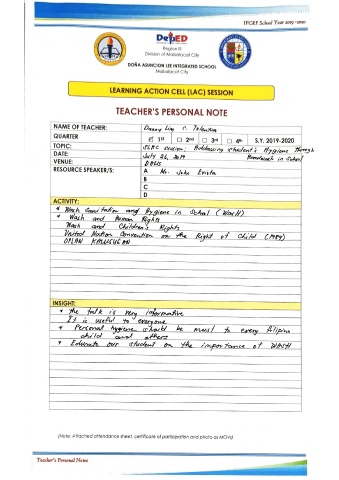 IPCRF School Year 2019-2020
DepED
Region III
Division of Mabalacat City
DOÑA ASUNCION LEE INTEGRATED SCHOOL
Mabalacat City
LEARNING ACTION CELL (LAC) SESSION
TEACHER'S PERSONAL NOTE
NAME OF TEACHER: Danny Lino C. Tolentino
QUARTER ☑ 1st ☐ 2nd ☐ 3rd ☐ 4th S.Y. 2019-2020
TOPIC: SLAC session: Addressing student's Hygiene through
Homeroom in School
DATE: July 26, 2019
VENUE: DALIS
RESOURCE SPEAKER/S: A Mr. John
B
C
D
ACTIVITY:
* Wash Sanitation and Hygiene in School (WasH)
* Wash and Human Rights
Wash and Children's Rights
United Nation Convention on the Right of Child (1989)
OPLAN KALUSUGAN
INSIGHT:
* The talk is very informative
It is useful to everyone
* Personal hygiene should be must to every filipino
child and others
* Educate our student on the importance of WASH
(Note: Attached attendance sheet, certificate of participation and photo as MOVs)
Teacher's Personal Notes